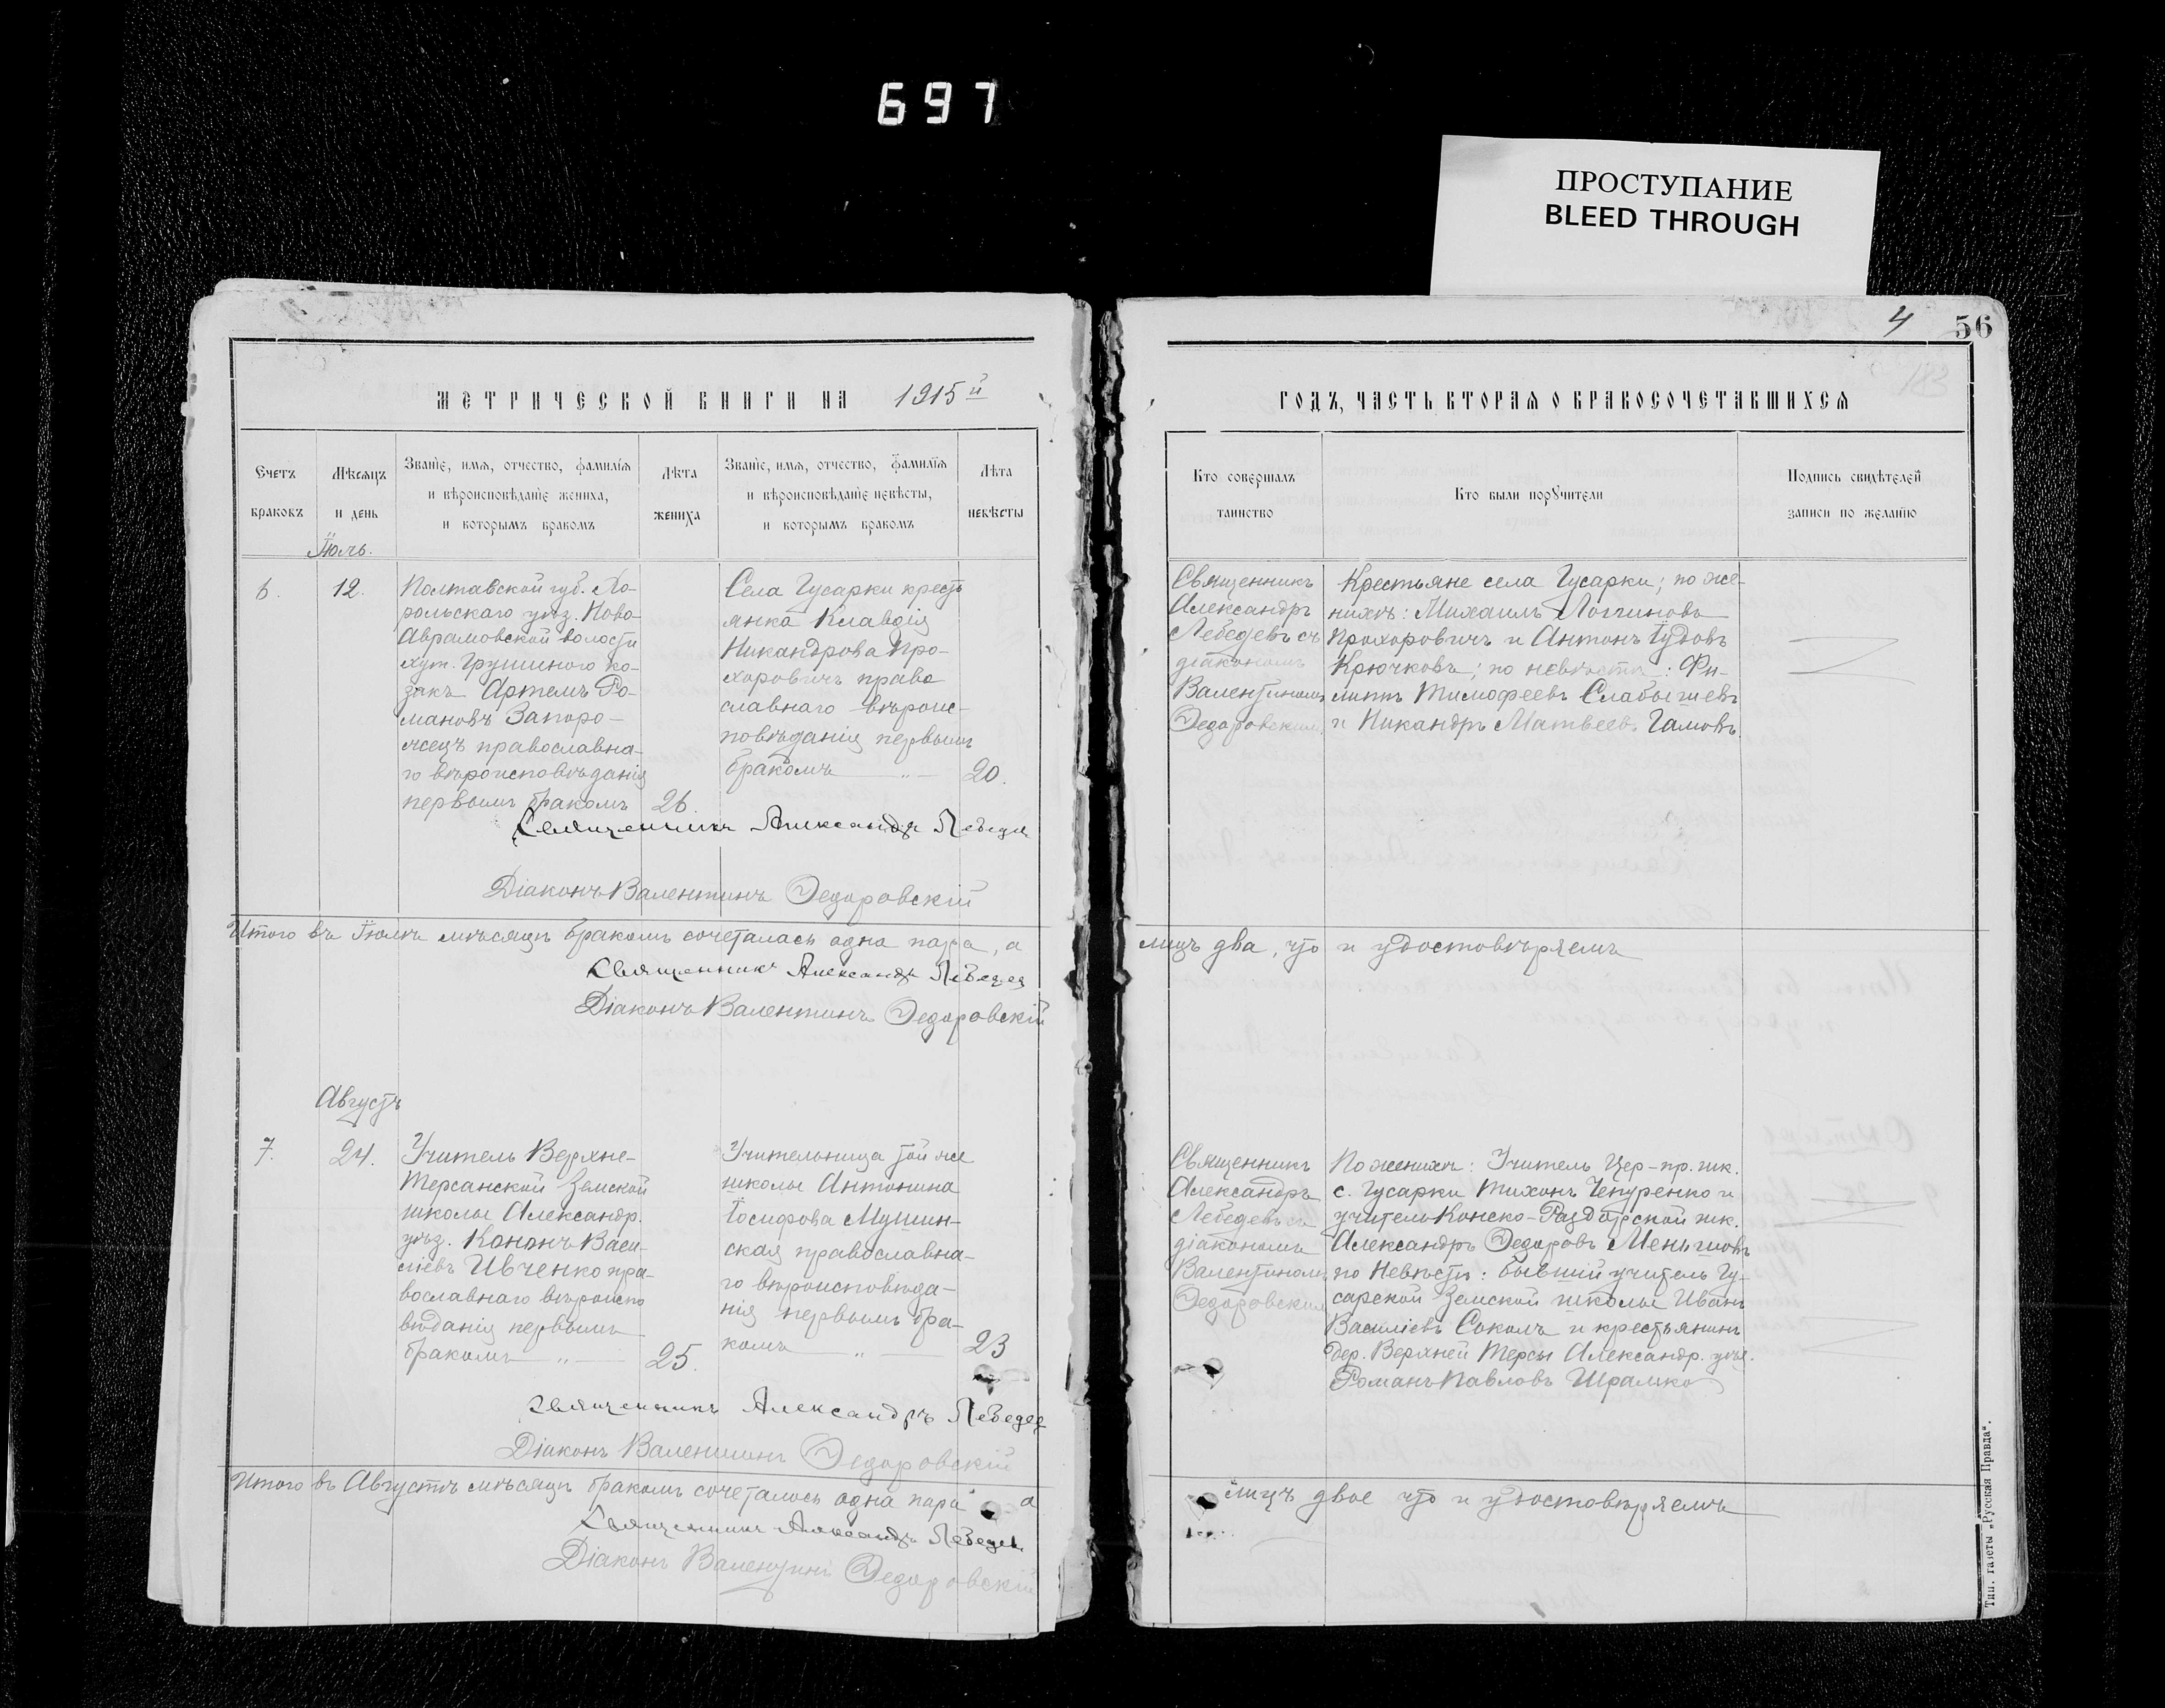 697
ПРОСТУПАНИЕ
BLEED THROUGH
4 56
МЕТРИЧЕСКОЙ КНИГИ НА 1915й
ГОДЪ, ЧАСТЬ ВТОРАЯ О БРАКОСОЧЕТАВШИХСЯ
Счетъ браковъ
Мѣсяцъ и день
Званіе, имя, отчество, фамилія
и вѣроисповѣданіе жениха,
и которымъ бракомъ
Лѣта жениха
Званіе, имя, отчество, фамилія
и вѣроисповѣданіе невѣсты,
и которымъ бракомъ
Лѣта невѣсты
Кто совершалъ
таинство
Кто были поручители
Подпись свидѣтелей
записи по желанію
Іюль.
6. 12.
Полтавской губ. Хо-
рольскаго уѣз. Ново-
Аврамовской волости
хут. Грушиного ко-
закъ Артемъ Ро-
мановъ Запоро-
жецъ православна-
го вѣроисповѣданія
первымъ бракомъ 26.
Села Гусарки кресть
янка Клавдія
Никандрова Про-
хоровичъ право
славнаго вѣроис-
повѣданія первымъ
бракомъ — „ — 20.
Священникъ
Александръ
Лебедевъ съ
діакономъ
Валентиномъ
Ѳедоровскимъ
Крестьяне села Гусарки; по же-
нихѣ: Михаилъ Логгиновъ
Прохоровичъ и Антонъ Іудовъ
Крючковъ; по невѣстѣ: Фи-
липпъ Тимофеевъ Слабышевъ
и Никандръ Матвеевъ Гамовъ.
Священникъ Александръ Лебедев
Діаконъ Валентинъ Ѳедоровскій
Итого въ Іюлѣ мѣсяцѣ бракомъ сочеталась одна пара, а
лицъ два, что и удостовѣряемъ
Священникъ Александръ Лебедев
Діаконъ Валентинъ Ѳедоровскій
Августъ
7. 24.
Учитель Верхне-
Терсанской Земской
школы Александр.
уѣз. Кононъ Васи-
ліевъ Ивченко пра-
вославнаго вѣроиспо
вѣданія первымъ
бракомъ — „ — 25.
Учительница той же
школы Антонина
Іосифова Мушин-
ская православна-
го вѣроисповѣда-
нія первымъ бра-
комъ — „ — 23
Священникъ
Александръ
Лебедевъ съ
діакономъ
Валентиномъ
Ѳедоровским
По женихѣ: Учитель Цер-пр. шк.
с. Гусарки Тихонъ Чепуренко и
учитель Конско-Раздорской шк.
Александръ Ѳедоровъ Меньшовъ
по Невѣстѣ: бывшій учитель Гу-
сарской Земской школы Иванъ
Василіевъ Соколъ и крестьянинъ
дер. Верхней Терсы Александр. уѣз.
Романъ Павловъ Шрамко
Священникъ Александръ Лебедев
Діаконъ Валентинъ Ѳедоровскій
Итого въ Августѣ мѣсяцѣ бракомъ сочеталось одна пара а
лицъ двое что и удостовѣряемъ
Священникъ Александръ Лебедев
Діаконъ Валентинъ Ѳедоровскій
Тип. газеты „Русская Правда“.